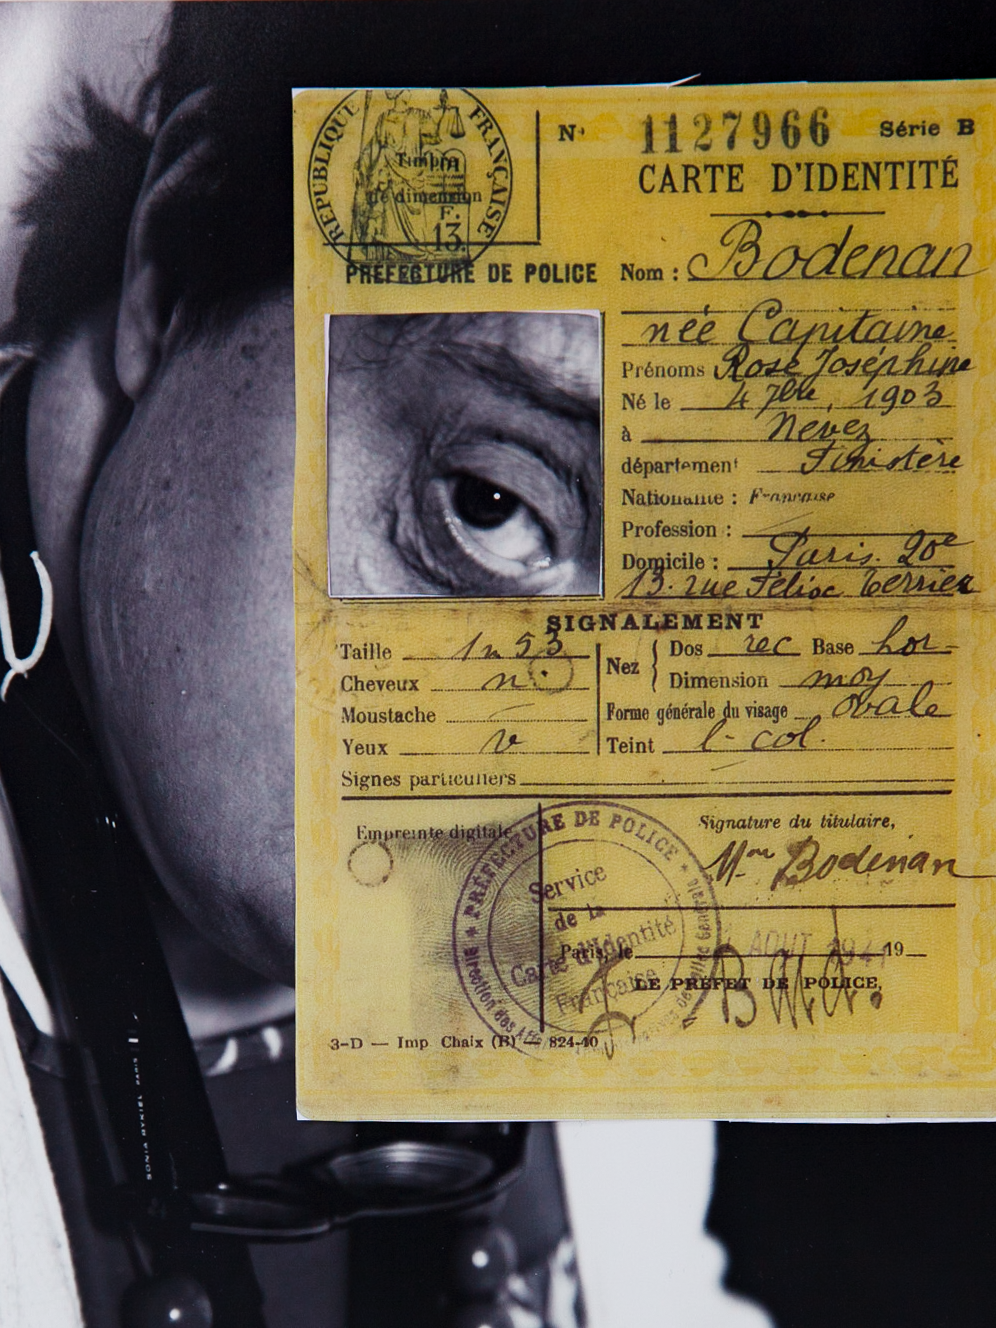 RÉPUBLIQUE FRANÇAISE
Timbre
de dimension
F.
13.
N° 1127966 Série B
CARTE D'IDENTITÉ
PREFECTURE DE POLICE
Nom : Bodenan
née Capitaine
Prénoms Rose Joséphine
Né le 4 7bre, 1903
à Nevez
département Finistère
Nationalité : Française
Profession :
Domicile : Paris. 20e
13. rue Félix Terrier
SIGNALEMENT
Taille 1m 53
Cheveux n.
Moustache
Yeux v
Signes particuliers
Nez Dos rec Base hor
Dimension moy
Forme générale du visage ovale
Teint l- col.
Empreinte digitale
PRÉFECTURE DE POLICE
Service
de la
Carte d'Identité
Française
Direction des
Signature du titulaire,
Mme Bodenan
Paris, le AOUT 1941 19
LE PRÉFET DE POLICE,
3-D — Imp Chaix (B) — 824-40
SONIA RYKIEL PARIS